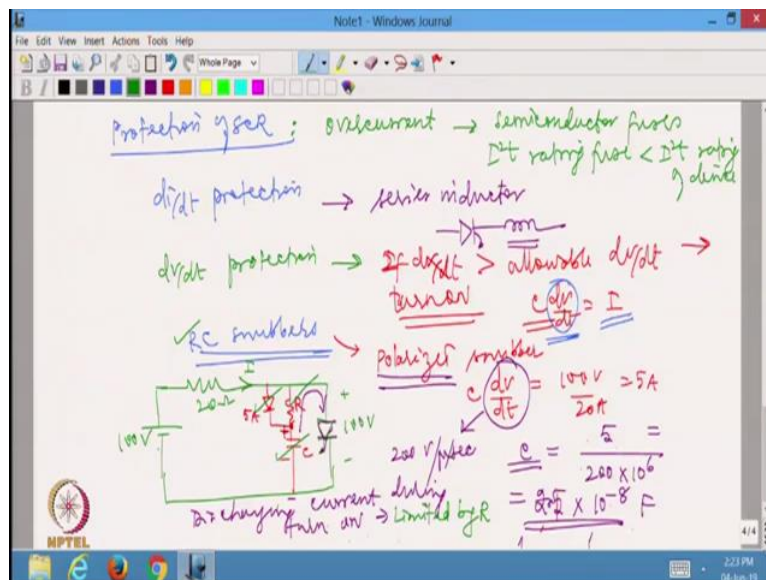 Note1 - Windows Journal
File Edit View Insert Actions Tools Help
Whole Page
B I
Protection of SCR : overcurrent → semiconductor fuses
I²t rating fuse < I²t rating
of device
di/dt protection → series inductor
dv/dt protection → If dv/dt > allowable dv/dt →
turn on C dv/dt = I
✓RC snubbers → Polarized snubber
I
20Ω
C dv/dt = 100V/20Λ = 5A
100V
5A
R
C
+
100V
-
200 V/μsec
C = 5/200 × 10⁶ =
= 2.5 × 10⁻⁸ F
Discharging current during
turn on → Limited by R
NPTEL
4/4
2:23 PM
04-Jun-19